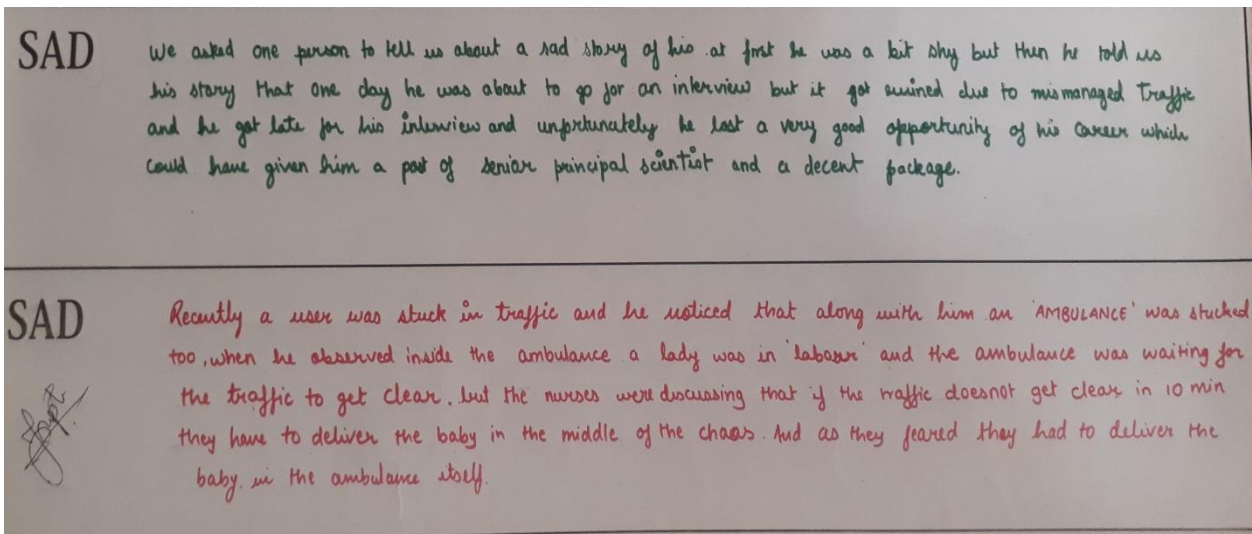 SAD
We asked one person to tell us about a sad story of his. at first he was a bit shy but then he told us
his story that one day he was about to go for an interview but it got ruined due to mismanaged Traffic
and he got late for his interview and unfortunately he lost a very good opportunity of his career which
could have given him a post of senior principal scientist and a decent package.
SAD
Recently a user was stuck in traffic and he noticed that along with him an 'AMBULANCE' was stucked
too, when he observed inside the ambulance a lady was in 'labour' and the ambulance was waiting for
the traffic to get clear. but the nurses were discussing that if the traffic doesnot get clear in 10 min
they have to deliver the baby in the middle of the chaos. And as they feared they had to deliver the
baby. in the ambulance itself.